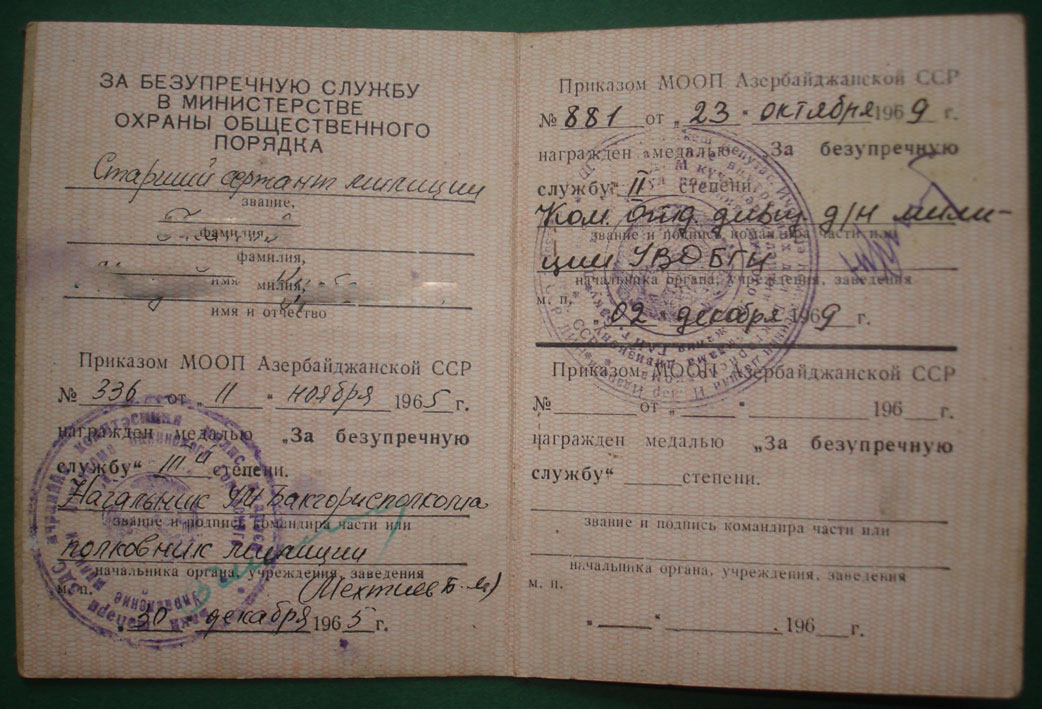 ЗА БЕЗУПРЕЧНУЮ СЛУЖБУ
В МИНИСТЕРСТВЕ
ОХРАНЫ ОБЩЕСТВЕННОГО
ПОРЯДКА
Старший сержант милиции
звание,
фамилия,
фамилия,
имя милия,
имя и отчество
Приказом МООП Азербайджанской ССР
№ 336 от „11 " ноября 1965 г.
награжден медалью „За безупречную
службу" III й степени.
Начальник УМ Бакгорисполкома
звание и подпись командира части или
полковник милиции
начальника органа, учреждения, заведения
Мехтиев
м. п.
„30 " декабря 1965 г.
Приказом МООП Азербайджанской ССР
№ 881 от „23 " октября 1969 г.
награжден медалью „За безупречную
службу" II степени.
Ком. отд. д/н мили-
звание и подпись командира части или
ции УВДБГИ
начальника органа, учреждения, заведения
м. п.
02 декабря 1969 г.
Приказом МООП Азербайджанской ССР
№ от „ " 196 г.
награжден медалью „За безупречную
службу" степени.
звание и подпись командира части или
начальника органа, учреждения, заведения
м. п.
„ " 196 г.